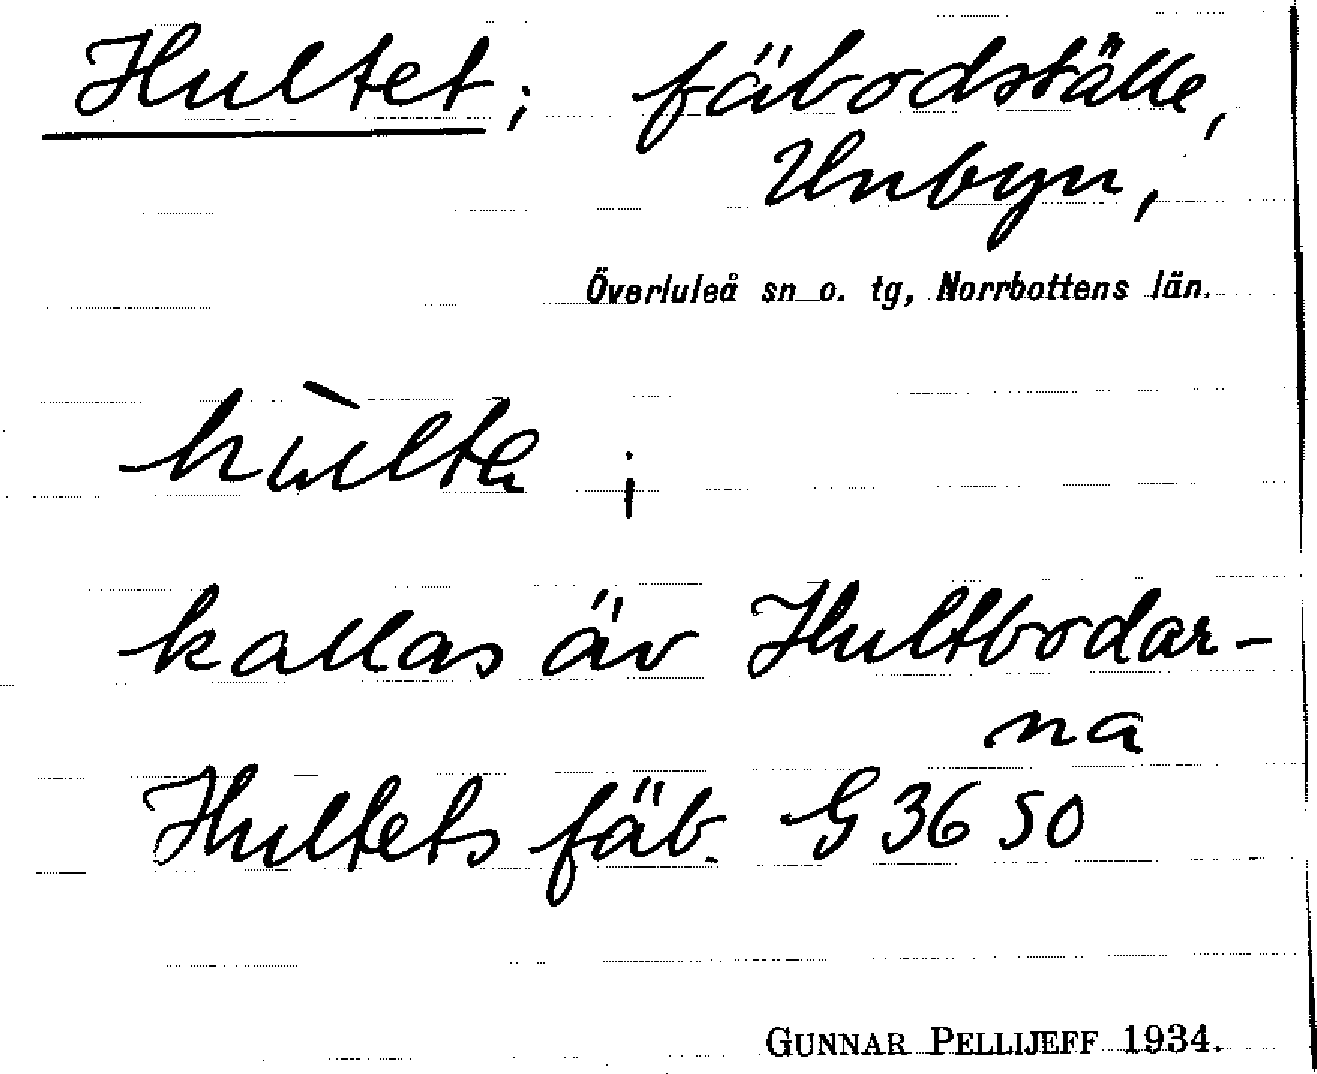 Hultet; fäbodställe,
Unbyn,
Överluleå sn o. tg, Norrbottens län.
kallas äv Hultbodar-
na
Hultets fäb. G 36 50
GUNNAR PELLIJEFF 1934.